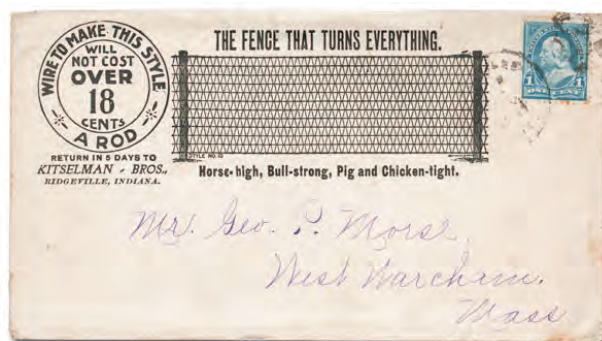 WIRE TO MAKE THIS STYLE
WILL
NOT COST
OVER
18
CENTS
A ROD
RETURN IN 5 DAYS TO
KITSELMAN - BROS.,
RIDGEVILLE, INDIANA.
THE FENCE THAT TURNS EVERYTHING.
STYLE NO. 10
Horse-high, Bull-strong, Pig and Chicken-tight.
1 1
ONE CENT
Mr. Geo. P. Morse
West Wareham.
Mass